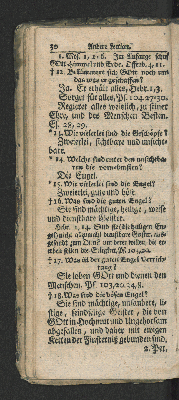 50 Andere Section.
1. Mos. 1, 1. 6. Im Anfange schuf
GOtt Himmel und Erde. Offenb. 4, 11.
† 12. Bekümmert sich GOtt noch um
das was er geschaffen?
Ja. Er erhält alles, Hebr. 1, 3.
Sorget für alles, Ps. 104, 27-30.
Regieret alles weislich, zu seiner
Ehre, und des Menschen Besten.
Es. 28, 29.
* 13. Wie vielerlei sind die Geschöpfe?
Zweierlei, sichtbare und unsicht-
bare.
* 14. Welche sind unter den unsichtba-
ren die vornehmsten?
Die Engel.
* 15. Wie vielerlei sind die Engel?
Zweierlei, gute und böse.
† 16. Was sind die guten Engel?
Sie sind mächtige, heilige, weise
und dienstbare Geister.
Hebr. 1, 14. Sind sie nicht allzumal
dienstbare Geister, aus-
gesandt zum Dienst um derer willen, die er-
erben sollen die Seligkeit. Ps. 103, 20.
† 17. Was ist der guten Engel Verrich-
tung?
Sie loben GOtt und dienen den
Menschen. Ps. 103, 20. 34, 8.
† 18. Was sind die bösen Engel?
Sie sind mächtige, unsaubere, li-
stige, feindselige Geister, die von
GOtt in Hochmut und Ungehorsam
abgefallen, und daher mit ewigen
Ketten der Finsternis gebunden sind,
2. Pet.